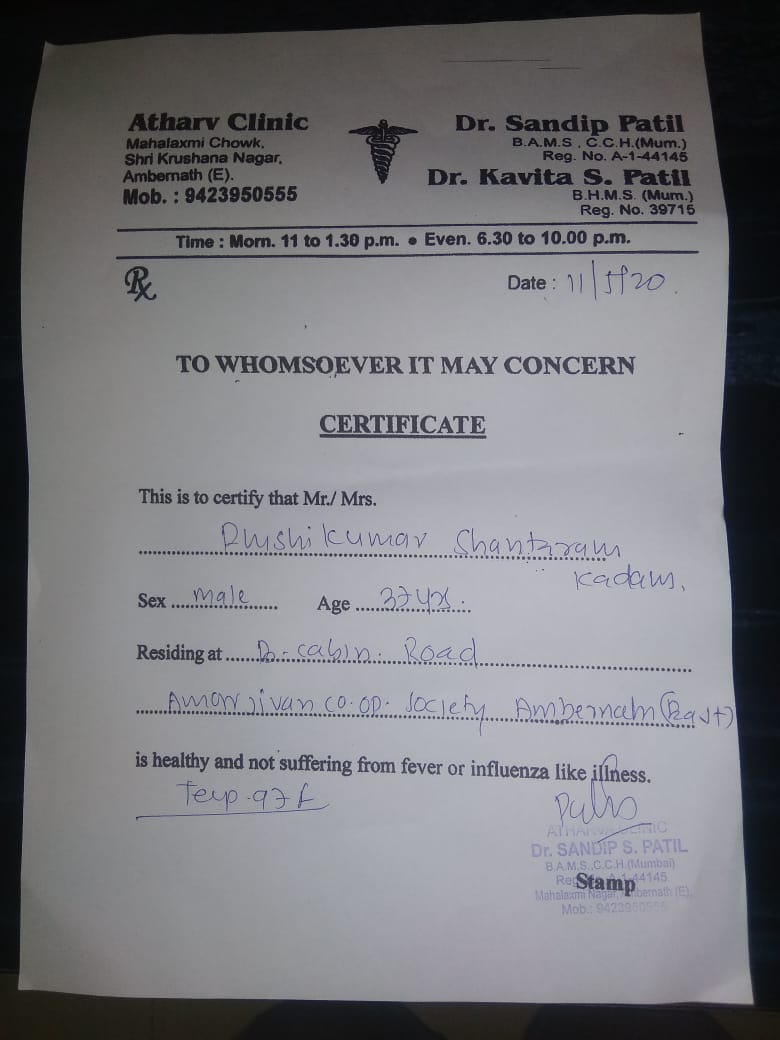 Atharv Clinic
Mahalaxmi Chowk,
Shri Krushana Nagar,
Ambernath (E).
Mob. : 9423950555
Dr. Sandip Patil
B.A.M.S , C.C.H.(Mum.)
Reg. No. A-1-44145
Dr. Kavita S. Patil
B.H.M.S. (Mum.)
Reg. No. 39715
Time : Morn. 11 to 1.30 p.m. ● Even. 6.30 to 10.00 p.m.
Rx
Date : 11/5/20.
TO WHOMSOEVER IT MAY CONCERN
CERTIFICATE
This is to certify that Mr./ Mrs.
Shantaram
Kadam.
Sex male Age 37 yrs.
Residing at B-cabin. Road
co.op. Society Ambernath (East)
is healthy and not suffering from fever or influenza like illness.
Temp. 97 f
ATHARVA CLINIC
Dr. SANDIP S. PATIL
B.A.M.S.,C.C.H.(Mumbai)
Reg. No. A-1-44145
Stamp
Mahalaxmi Nagar, Ambernath (E),
Mob.: 9423950555